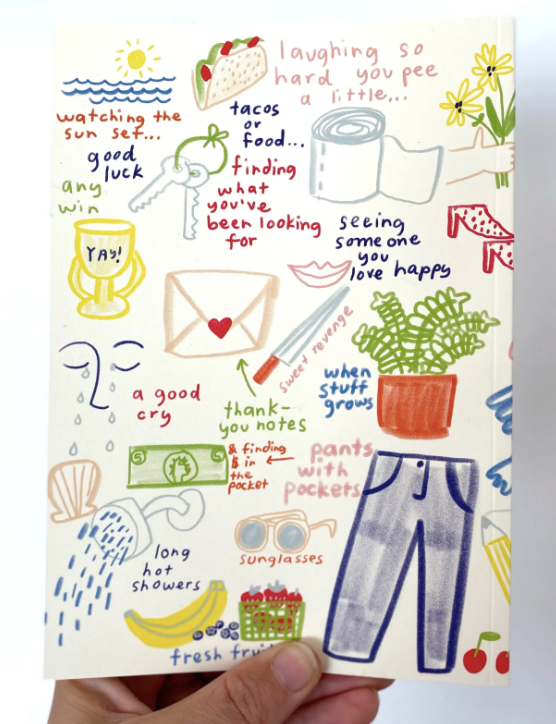 laughing so
hard you pee
a little...
watching the
sun set...
tacos
or
food...
good
luck
any
win
finding
what
you've
been looking
for
YAY!
seeing
someone
you
love happy
sweet revenge
when
stuff
grows
a good
cry
thank-
you notes
5
5
& finding
$ in
the
pocket
pants
with
pockets
long
hot
showers
sunglasses
fresh